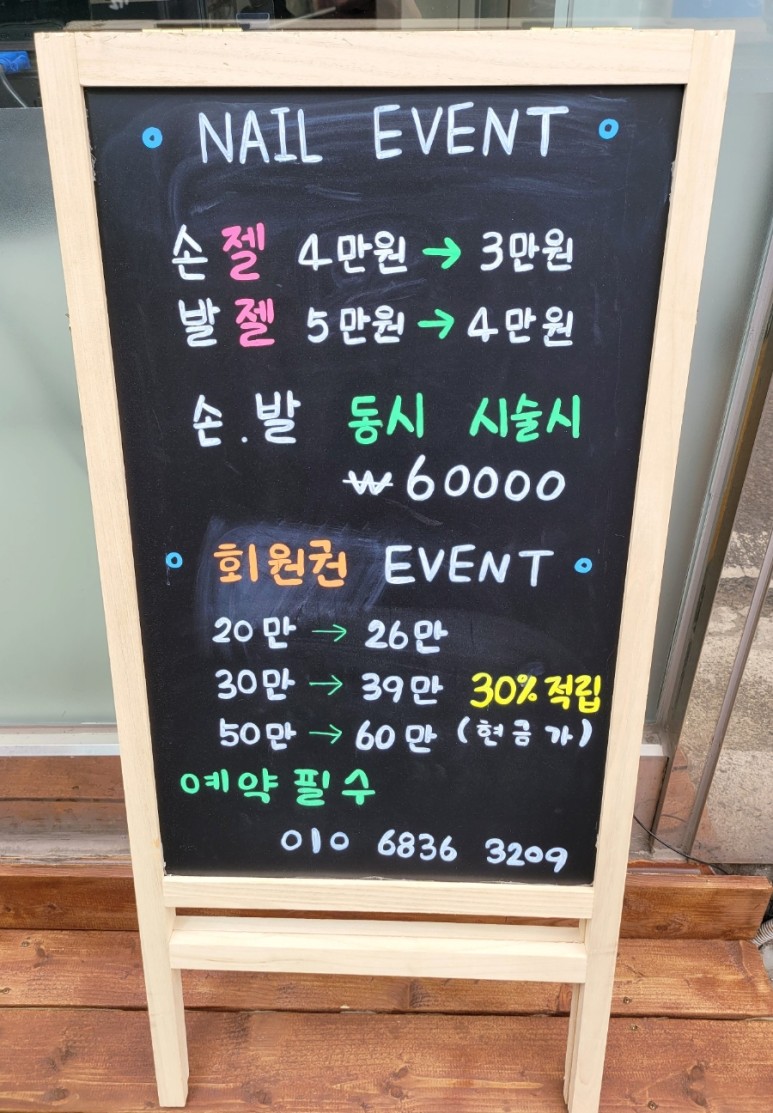 NAIL EVENT
손 젤 4만원 → 3만원
발 젤 5만원 → 4만원
손.발 동시 시술시
₩60000
회원권 EVENT
20만 → 26만
30만 → 39만 30% 적립
50만 → 60만 (현금가)
예약필수
010 6836 3209